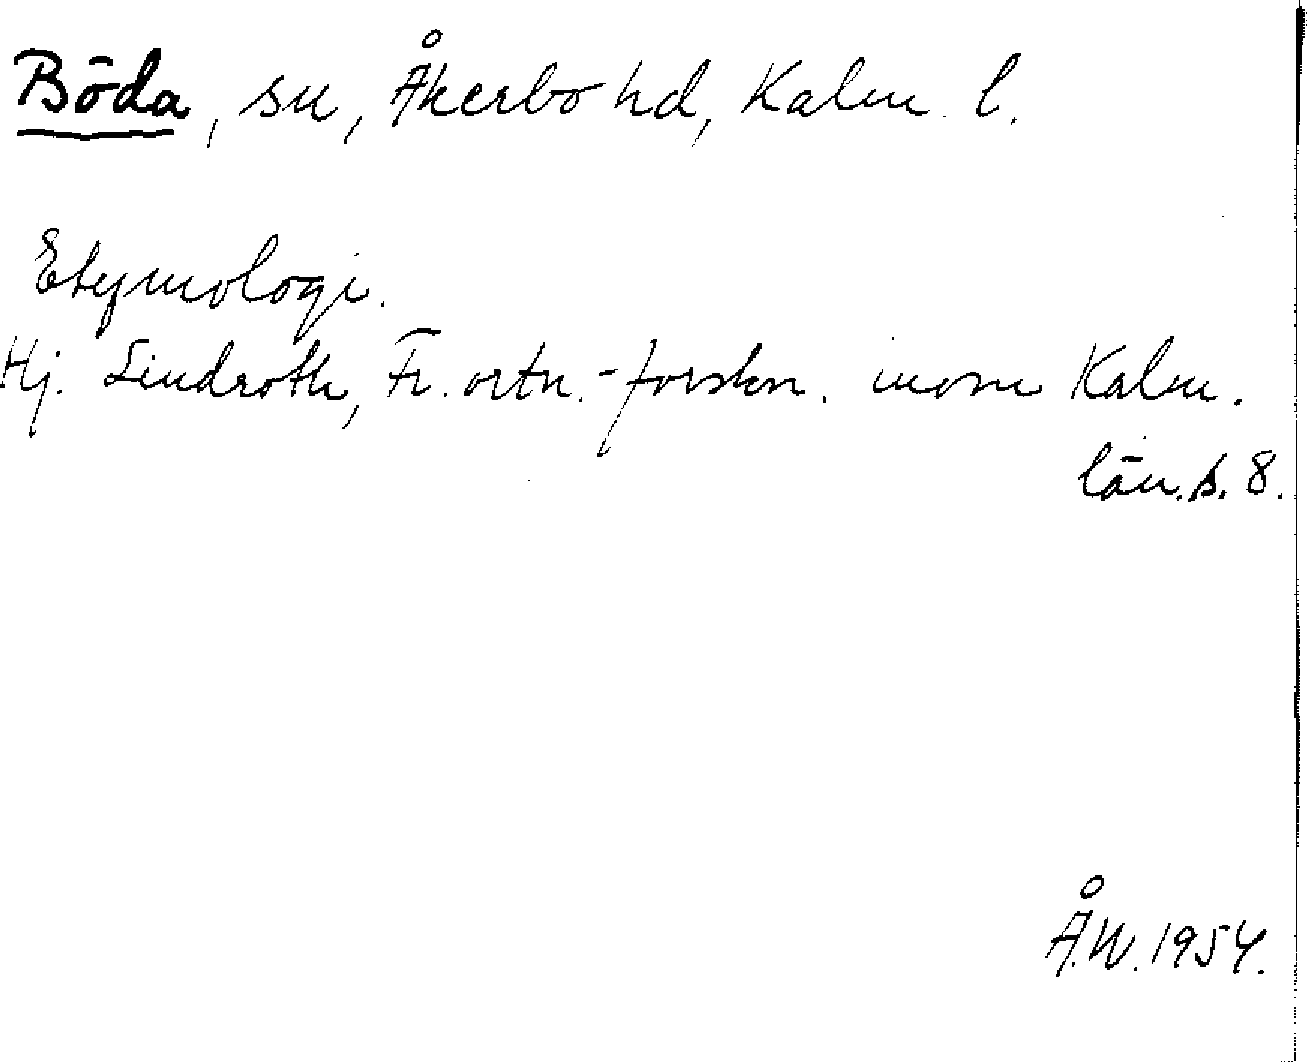 Böda, sn, Åkerbo hd, Kalm. l.
Etymologi.
Hj. Lindroth, Fr. ortn.-forskn. inom Kalm.
län. s. 8.
Å.W. 1954.